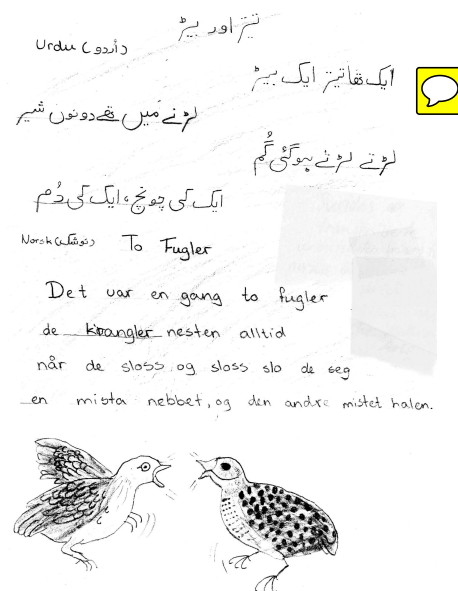 تیتر اور بیڑ
Urdu (اُردو)
ایک تھا تیتر ایک بیڑ
لڑنے میں تھے دونوں شیر
لڑتے لڑتے ہوگئی گُم
ایک کی چونچ، ایک کی دُم
Norsk To Fugler
Det var en gang to fugler
de krangler nesten alltid
når de sloss og sloss slo de seg
en mista nebbet, og den andre mistet halen.